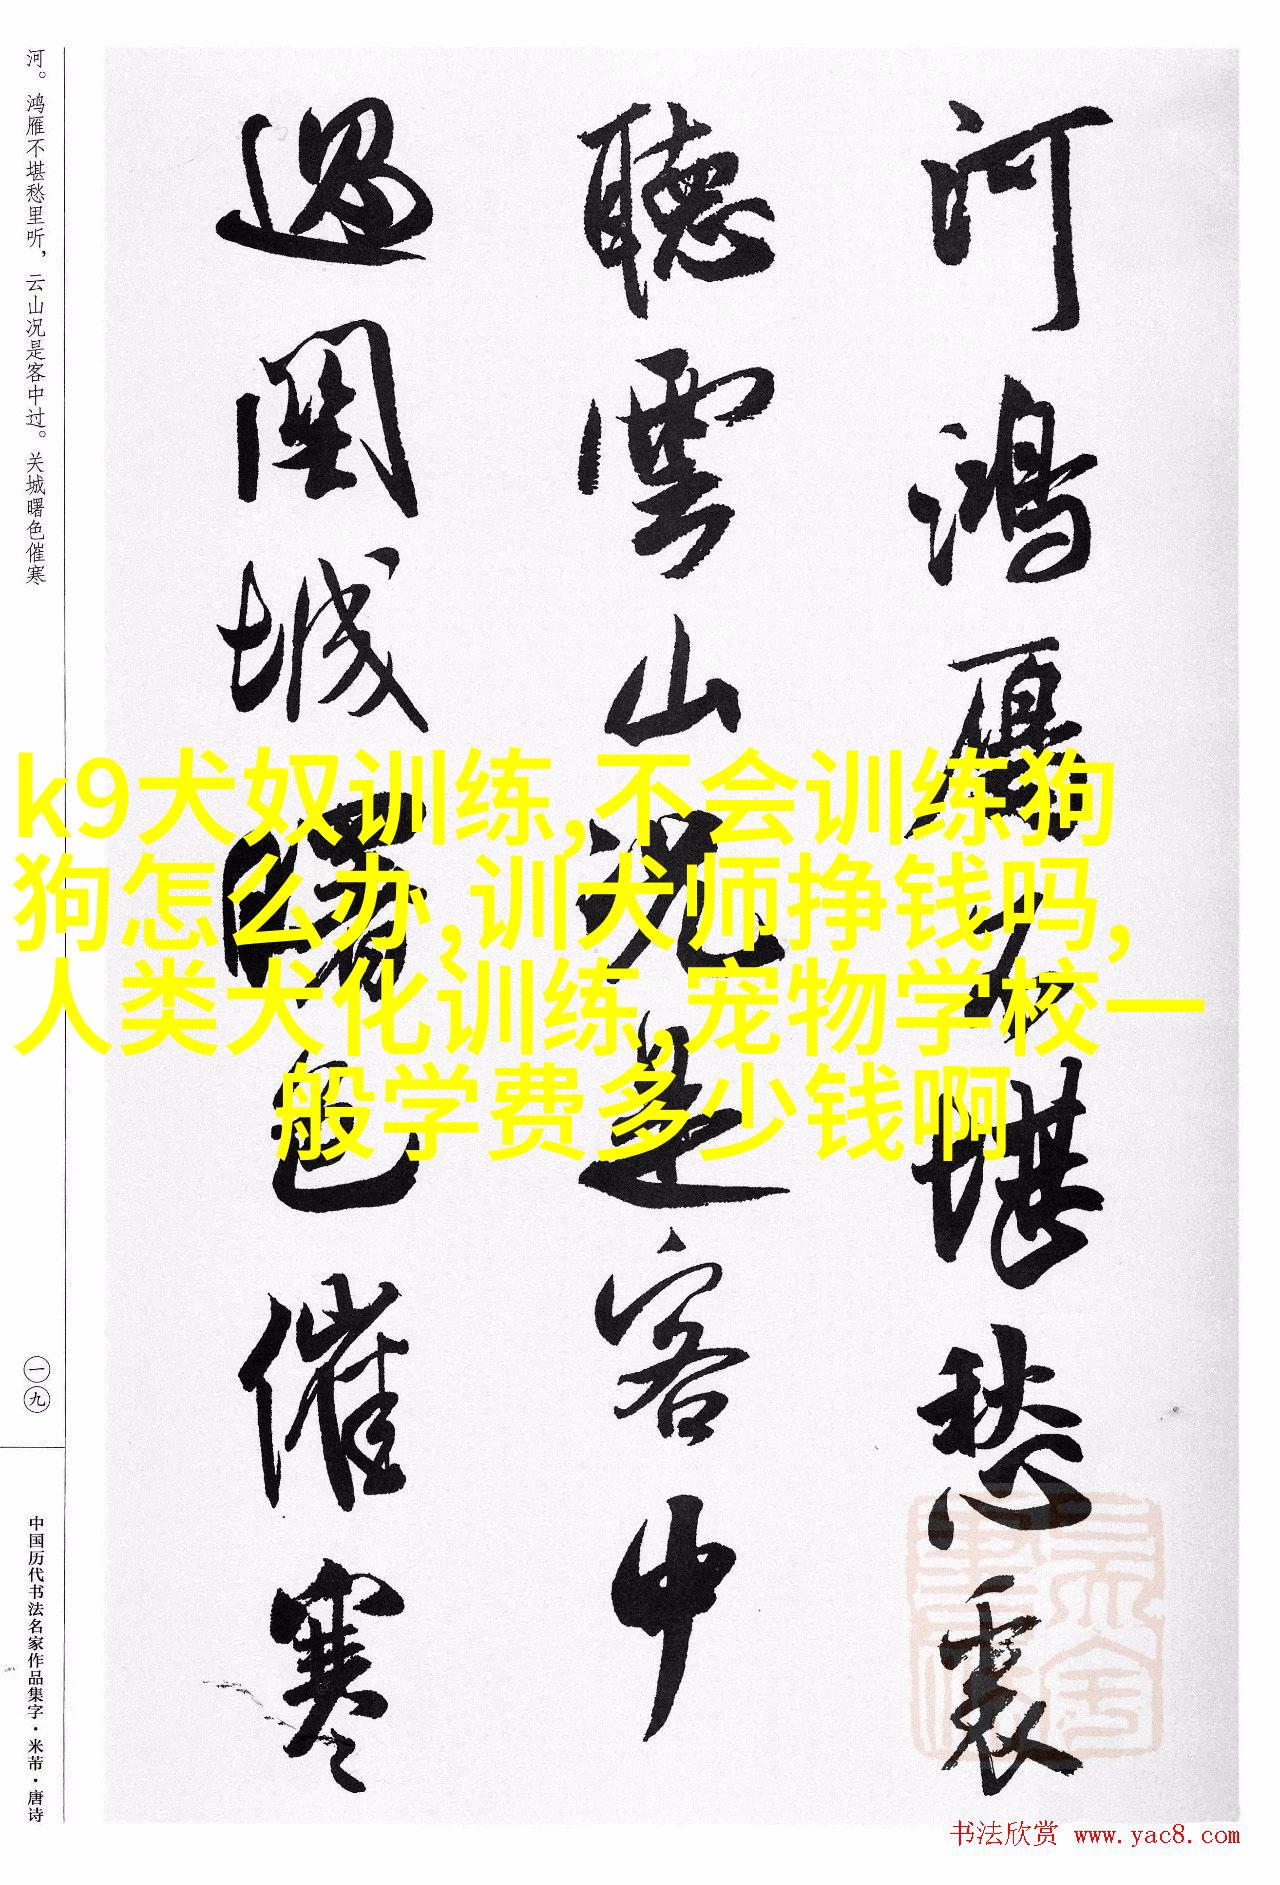 河鸿雁不堪愁裏
聽雲山況是客中
過関城曙色催寒
河。鸿雁不堪愁里听，云山况是客中过。关城曙色催寒
一九
中国历代书法名家作品集字·米芾·唐诗
k9犬奴训练,不会训练狗
狗怎么办,训犬师挣钱吗,
人类犬化训练,宠物学校一
般学费多少钱啊
书法欣赏 www.yac8.com